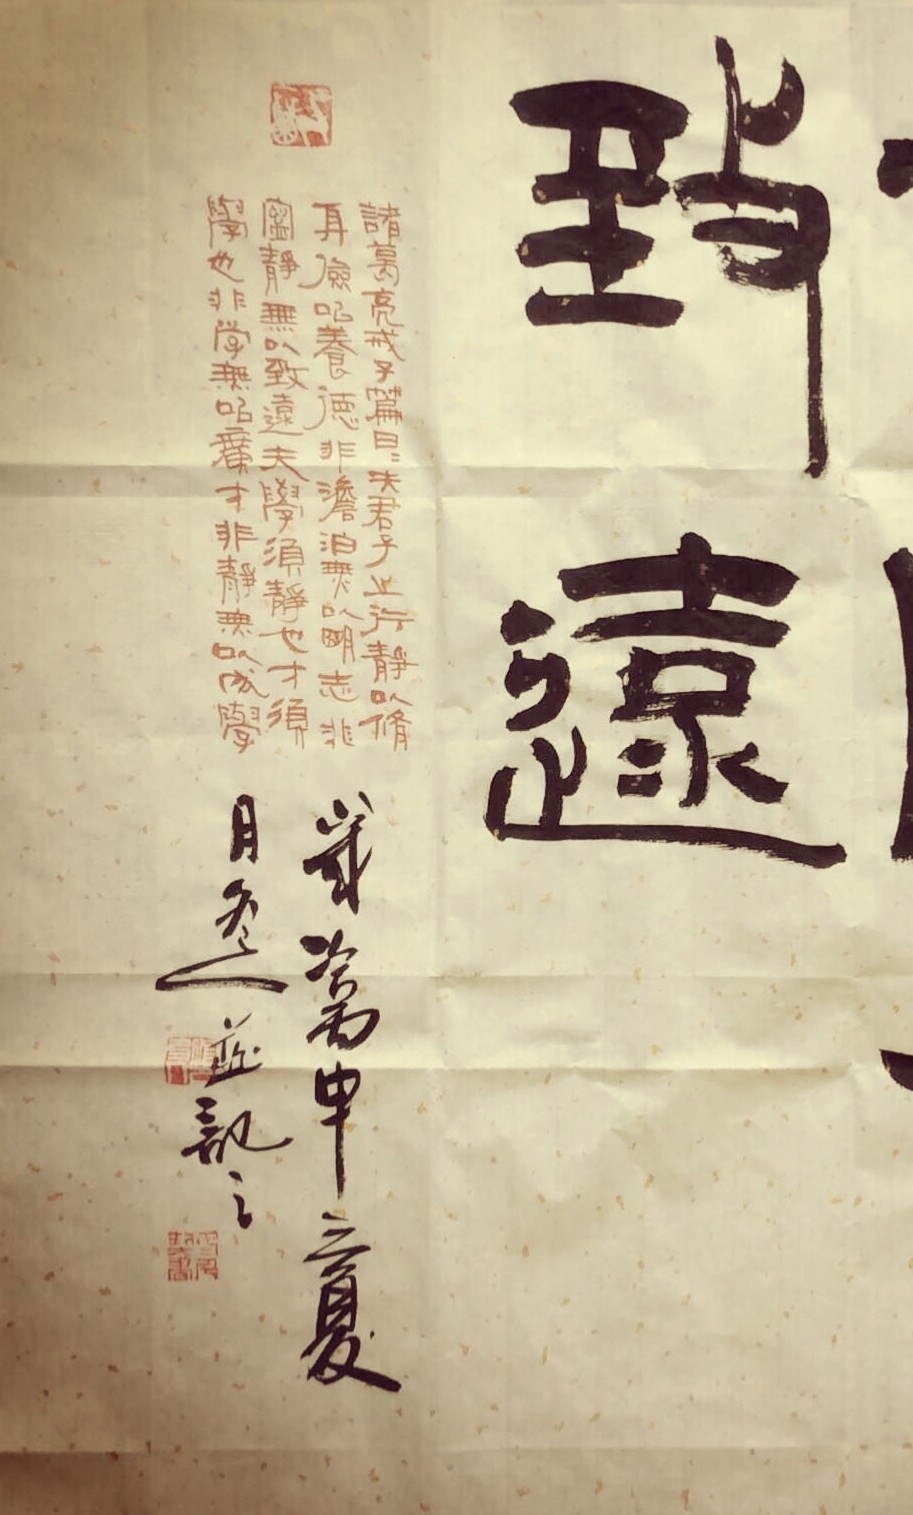 致遠
諸葛亮戒子篇曰:夫君子之行靜以脩
身儉以養德非澹泊無以明志非
寧靜無以致遠夫學須靜也才須
學也非学無以廣才非靜無以成學
歲次丙申之夏
月並記之